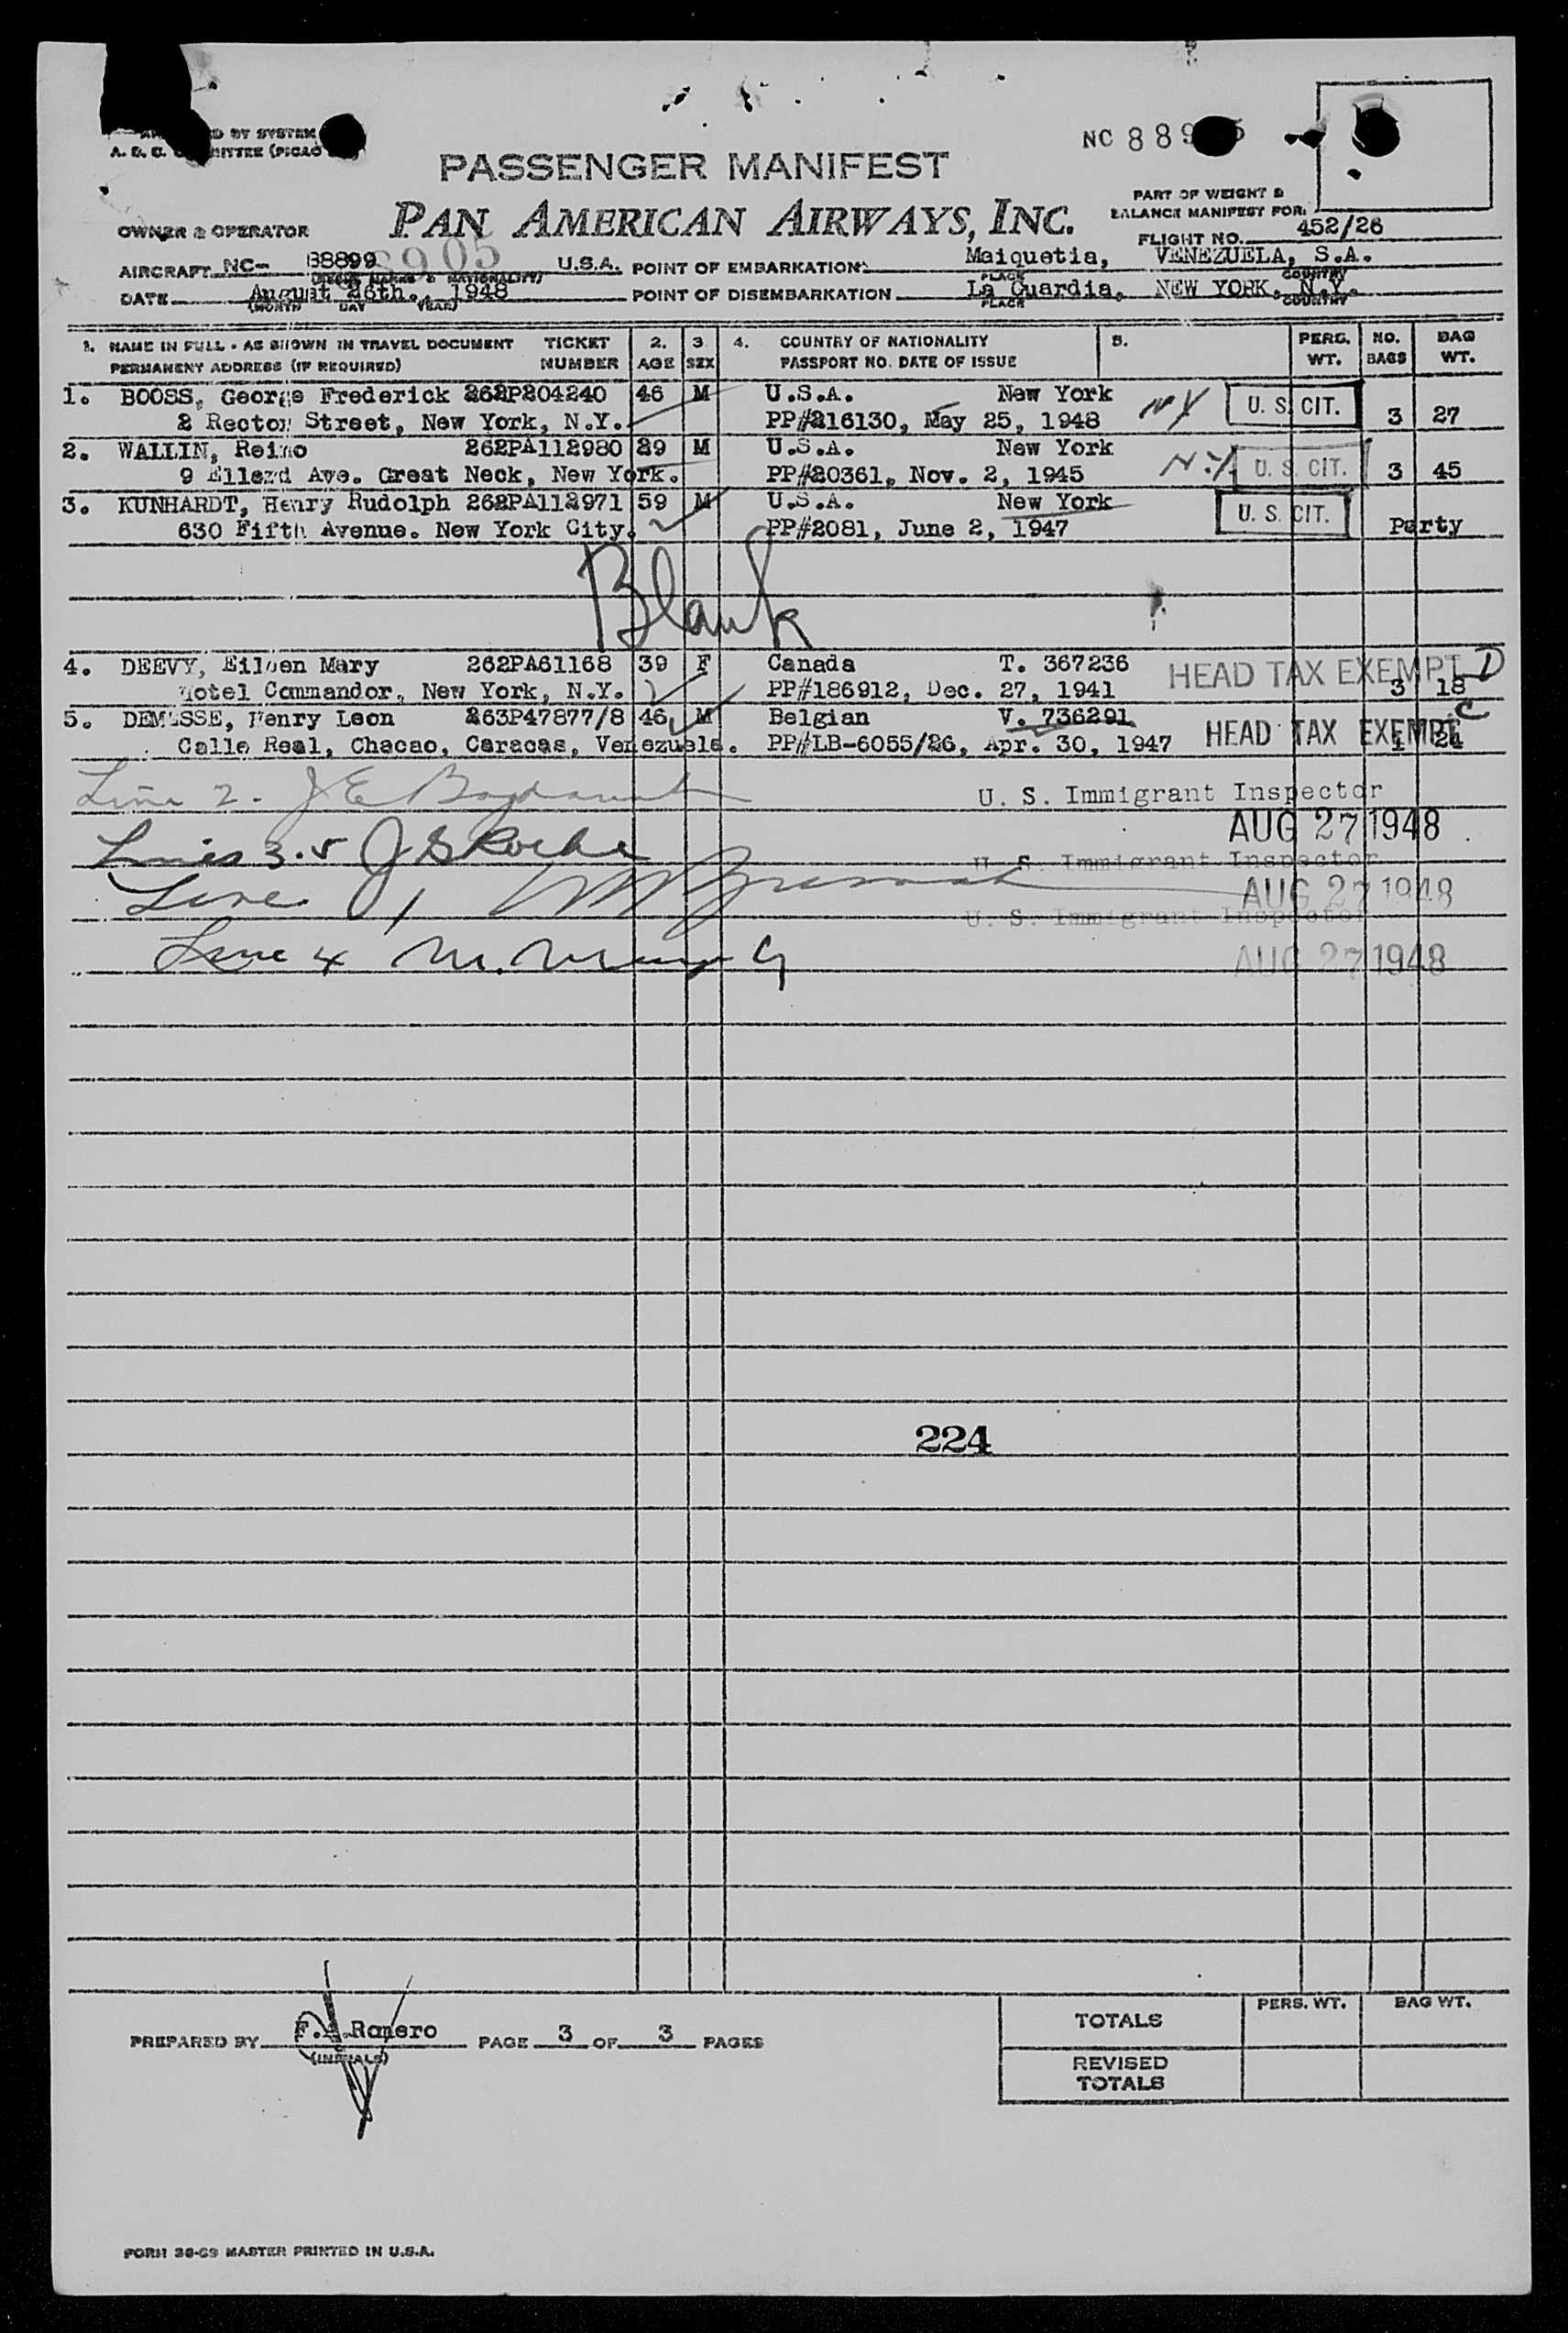 D BY SYSTEM
A. D. C. COMMITTEE (PICAO
NC 889 5
PASSENGER MANIFEST
PART OF WEIGHT &
BALANCE MANIFEST FOR:
OWNER & OPERATOR PAN AMERICAN AIRWAYS, INC.
FLIGHT NO. 452/26
AIRCRAFT NC- 88899 8905 U.S.A. POINT OF EMBARKATION: Maiquetia, VENEZUELA, S.A.
PLACE COUNTRY
DATE August 26th., 1948 POINT OF DISEMBARKATION La Guardia, NEW YORK, N.Y.
(MONTH DAY YEAR) PLACE COUNTRY
1. NAME IN FULL - AS SHOWN IN TRAVEL DOCUMENT TICKET 2. 3 4. COUNTRY OF NATIONALITY 5. PERS. NO. BAG
PERMANENT ADDRESS (IF REQUIRED) NUMBER AGE SEX PASSPORT NO. DATE OF ISSUE WT. BAGS WT.
1. BOOSS, George Frederick 262P204240 46 M U.S.A. New York NY U. S. CIT.
2 Rector Street, New York, N.Y. PP#216130, May 25, 1948 3 27
2. WALLIN, Reino 262PA112980 29 M U.S.A. New York
9 Ellard Ave. Great Neck, New York. PP#20361, Nov. 2, 1945 N.Y. U. S. CIT. 3 45
3. KUNHARDT, Henry Rudolph 262PA112971 59 M U.S.A. New York U. S. CIT.
630 Fifth Avenue. New York City. PP#2081, June 2, 1947 Party
Blank
4. DEEVY, Eileen Mary 262PA61168 39 F Canada T. 367236 HEAD TAX EXEMPT D
Hotel Commandor, New York, N.Y. PP#186912, Dec. 27, 1941 3 18
5. DEMESSE, Henry Leon 263P47877/8 46 M Belgian V. 736291 C
Calle Real, Chacao, Caracas, Venezuela. PP#LB-6055/26, Apr. 30, 1947 HEAD TAX EXEMPT 1 24
Line 2. J E U. S. Immigrant Inspector
AUG 27 1948
Lines 3.5 J S Roche U. S. Immigrant Inspector
Line 1 AUG 27 1948
U. S. Immigrant Inspector
Line 4 M. AUG 27 1948
224
PREPARED BY F. Romero PAGE 3 OF 3 PAGES
(INITIALS)
TOTALS PERS. WT. BAG WT.
REVISED
TOTALS
FORM 38-63 MASTER PRINTED IN U.S.A.